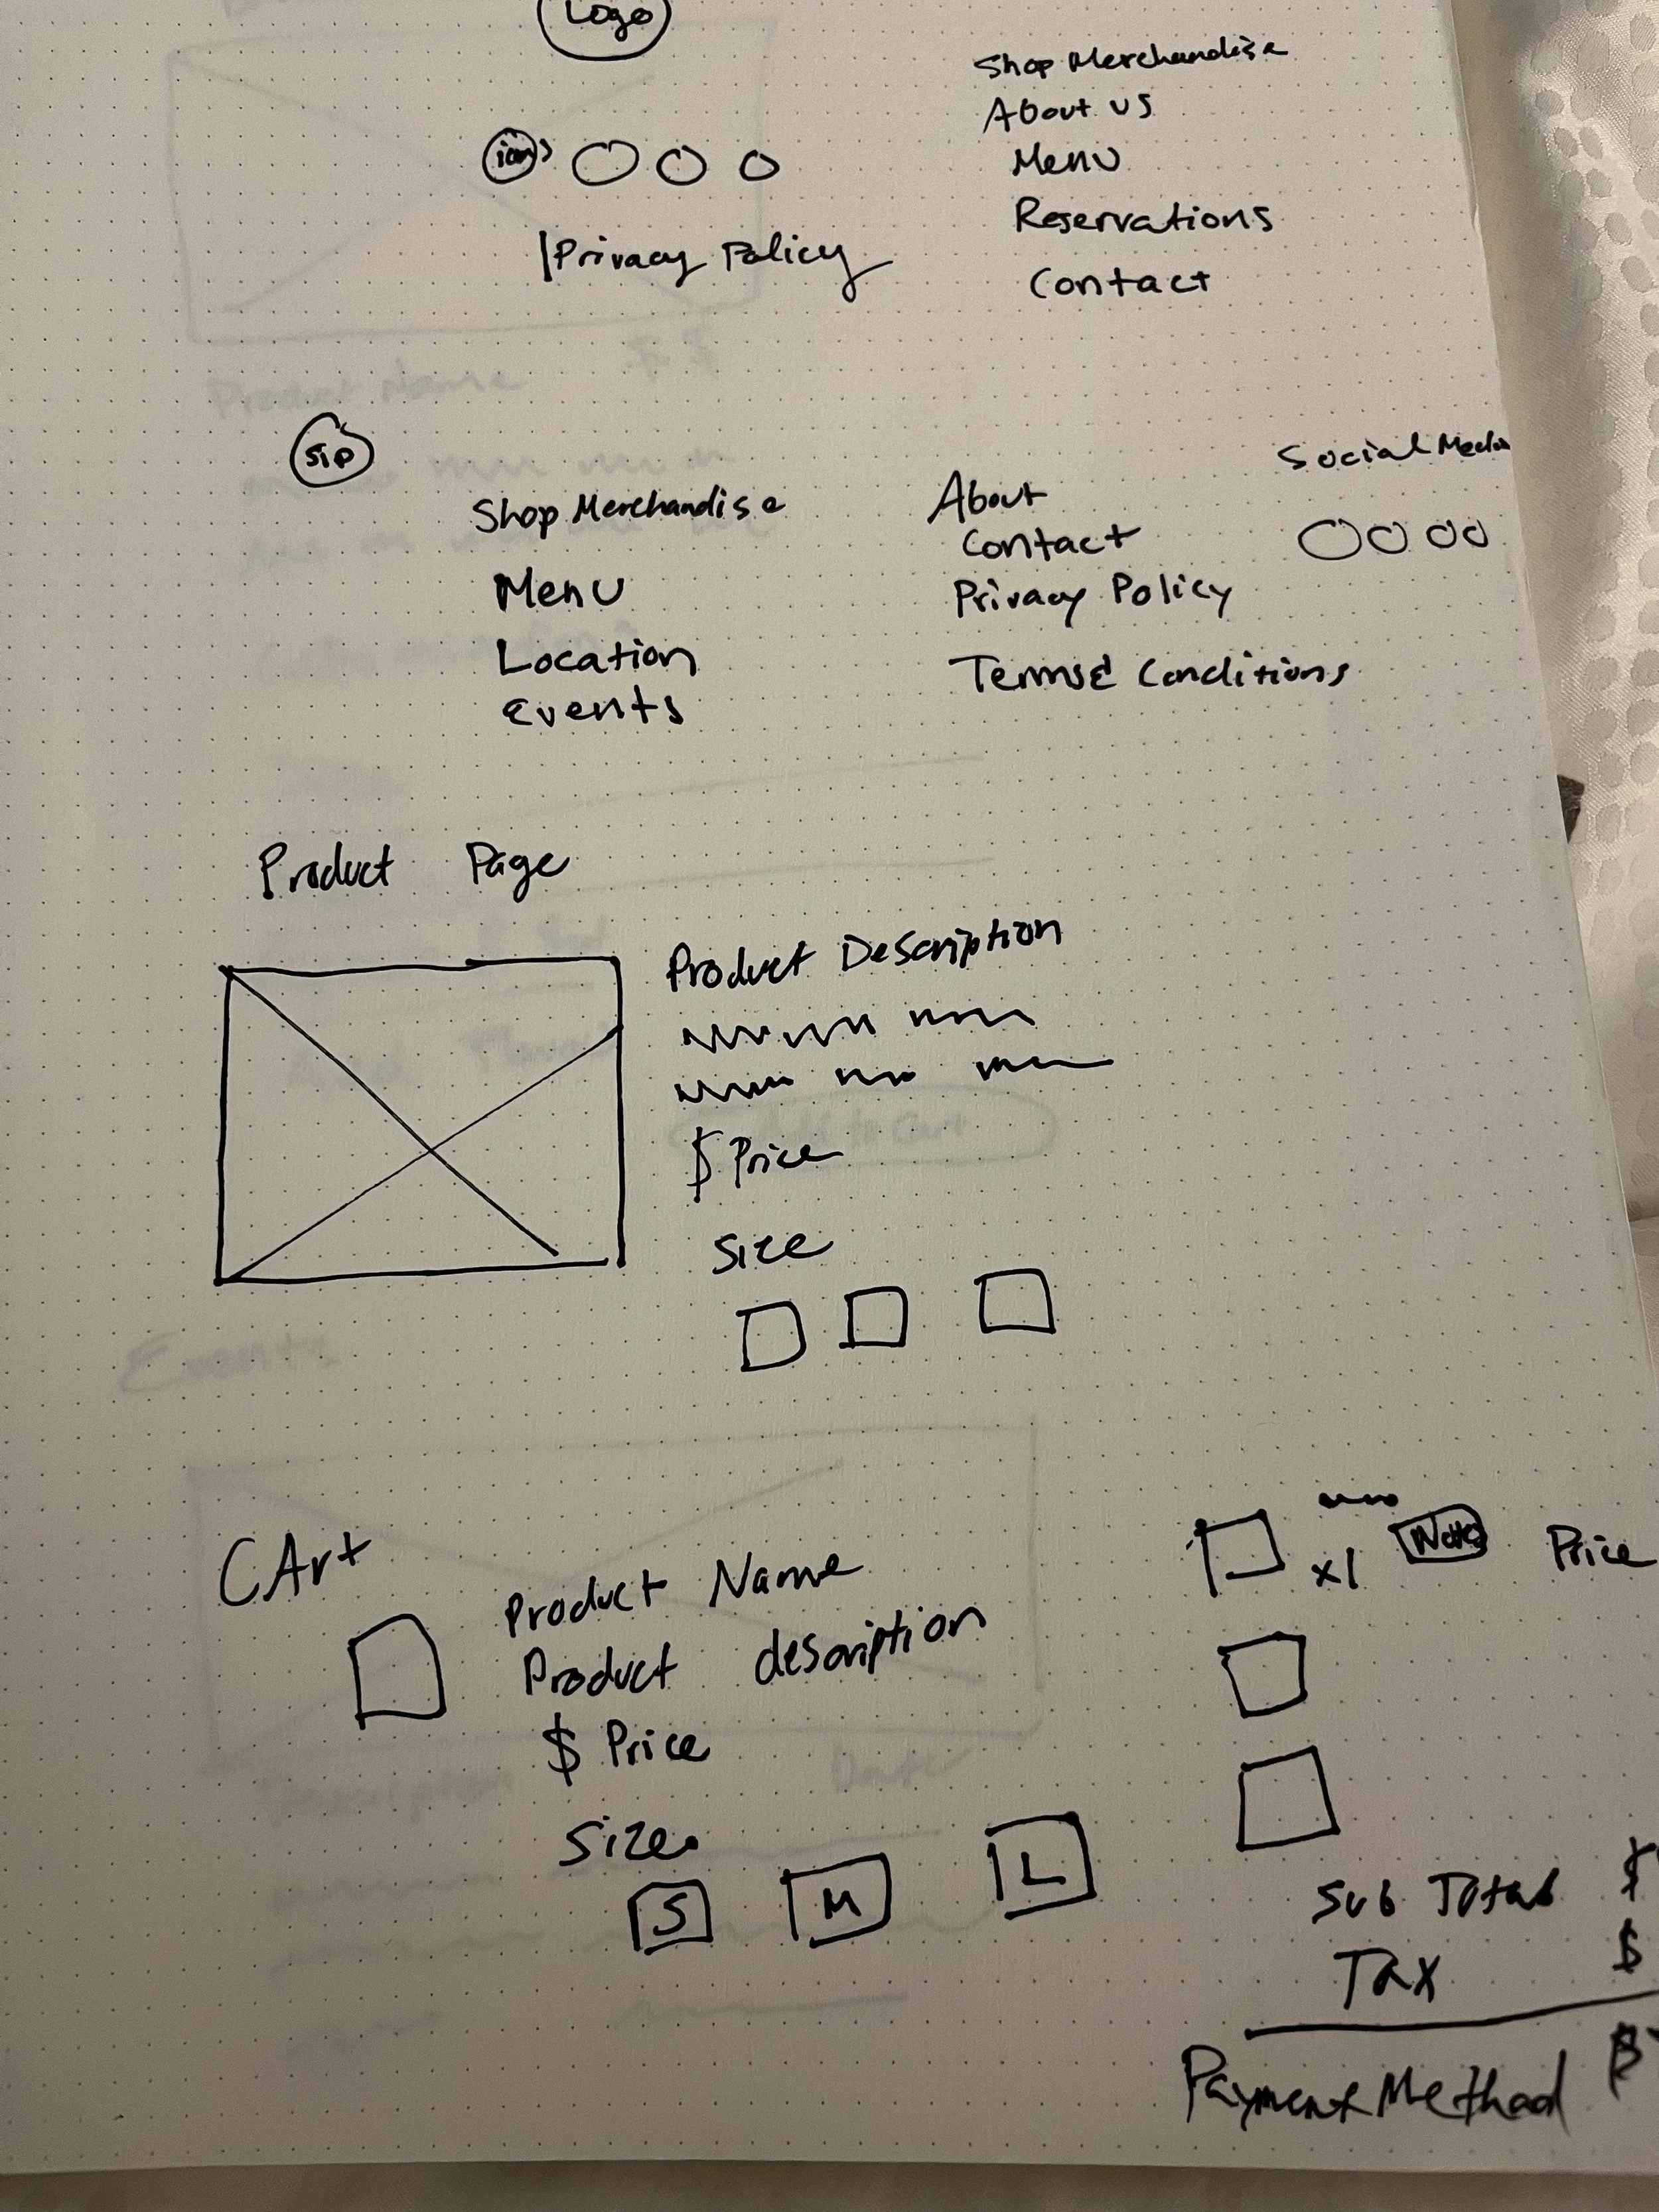 Logo
icon
Privacy Policy
Shop Merchandise
About us
Menu
Reservations
Contact
Sip
Shop Merchandise
Menu
Location
Events
About
Contact
Privacy Policy
Terms & Conditions
Social Media
Product Page
Product Description
$ Price
Size
CArt
Product Name
Product description
$ Price
Size
S M L
x1 Price
Sub Total $
Tax $
Payment Method $
Product Name
Add to Cart
Events
Description Date